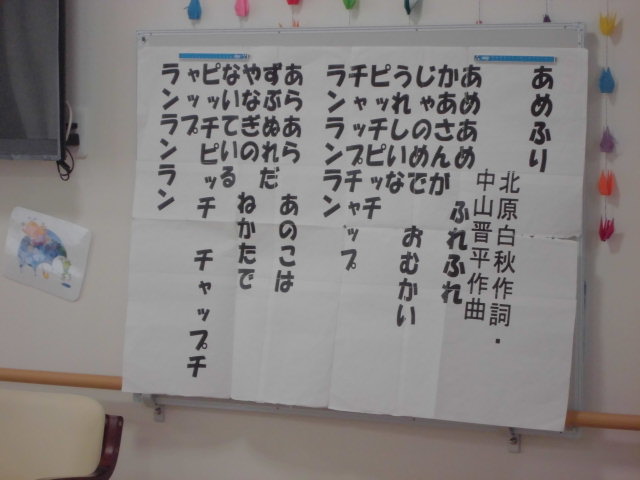 あめふり
北原白秋作詞・
中山晋平作曲
あめあめ　ふれふれ
かあさんが
じゃのめで　おむかい
うれしいな
ピッチピッチ
チャップチャップ
ランランラン
あらあら　あのこは
ずぶぬれだ
やなぎの　ねかたで
ないている
ピッチピッチ　チャップチ
ャップ
ランランラン